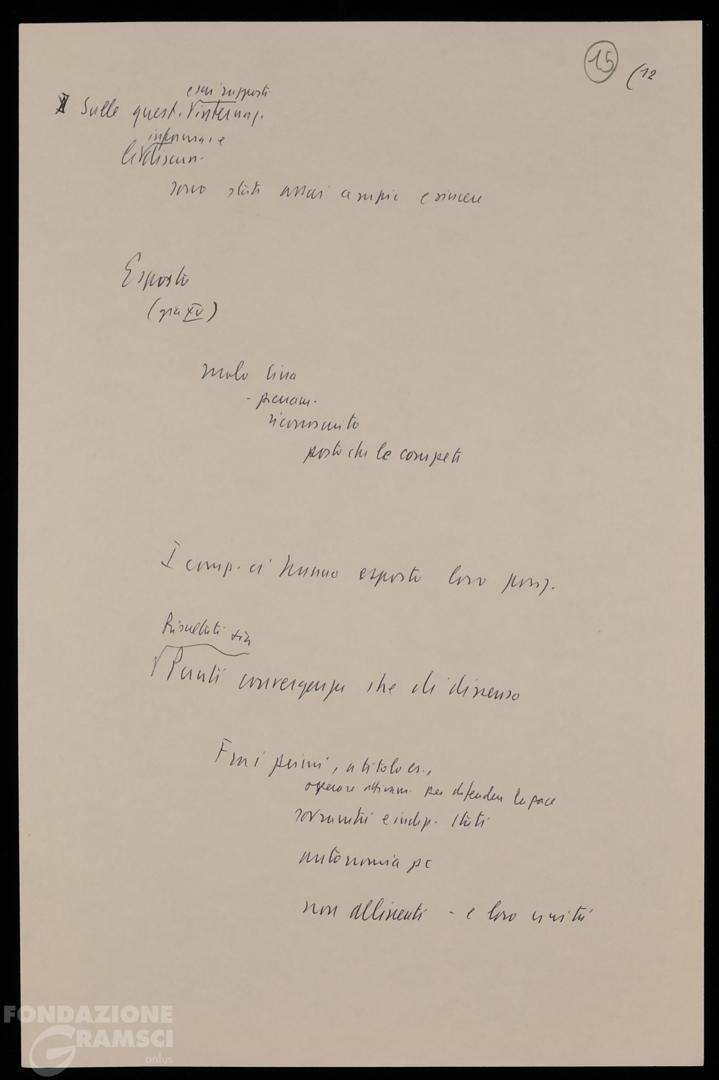 15 (12
e sui rapporti
X Sulle quest. √ internaz.
informaz. e
le √ discuss.
sono stati assai ampie e sincere
Esposto
(già XV)
ruolo Cina
- pienam.
riconosciuto
posto che le compete
I comp. ci hanno esposto loro posiz.
Risultati sia
√ Punti convergenza che di dissenso
Fra i primi, a titolo es.,
operare attivam. per difendere la pace
sovranità e indip. Stati
autonomia pc
non allineati - e loro unità
FONDAZIONE
GRAMSCI
onlus